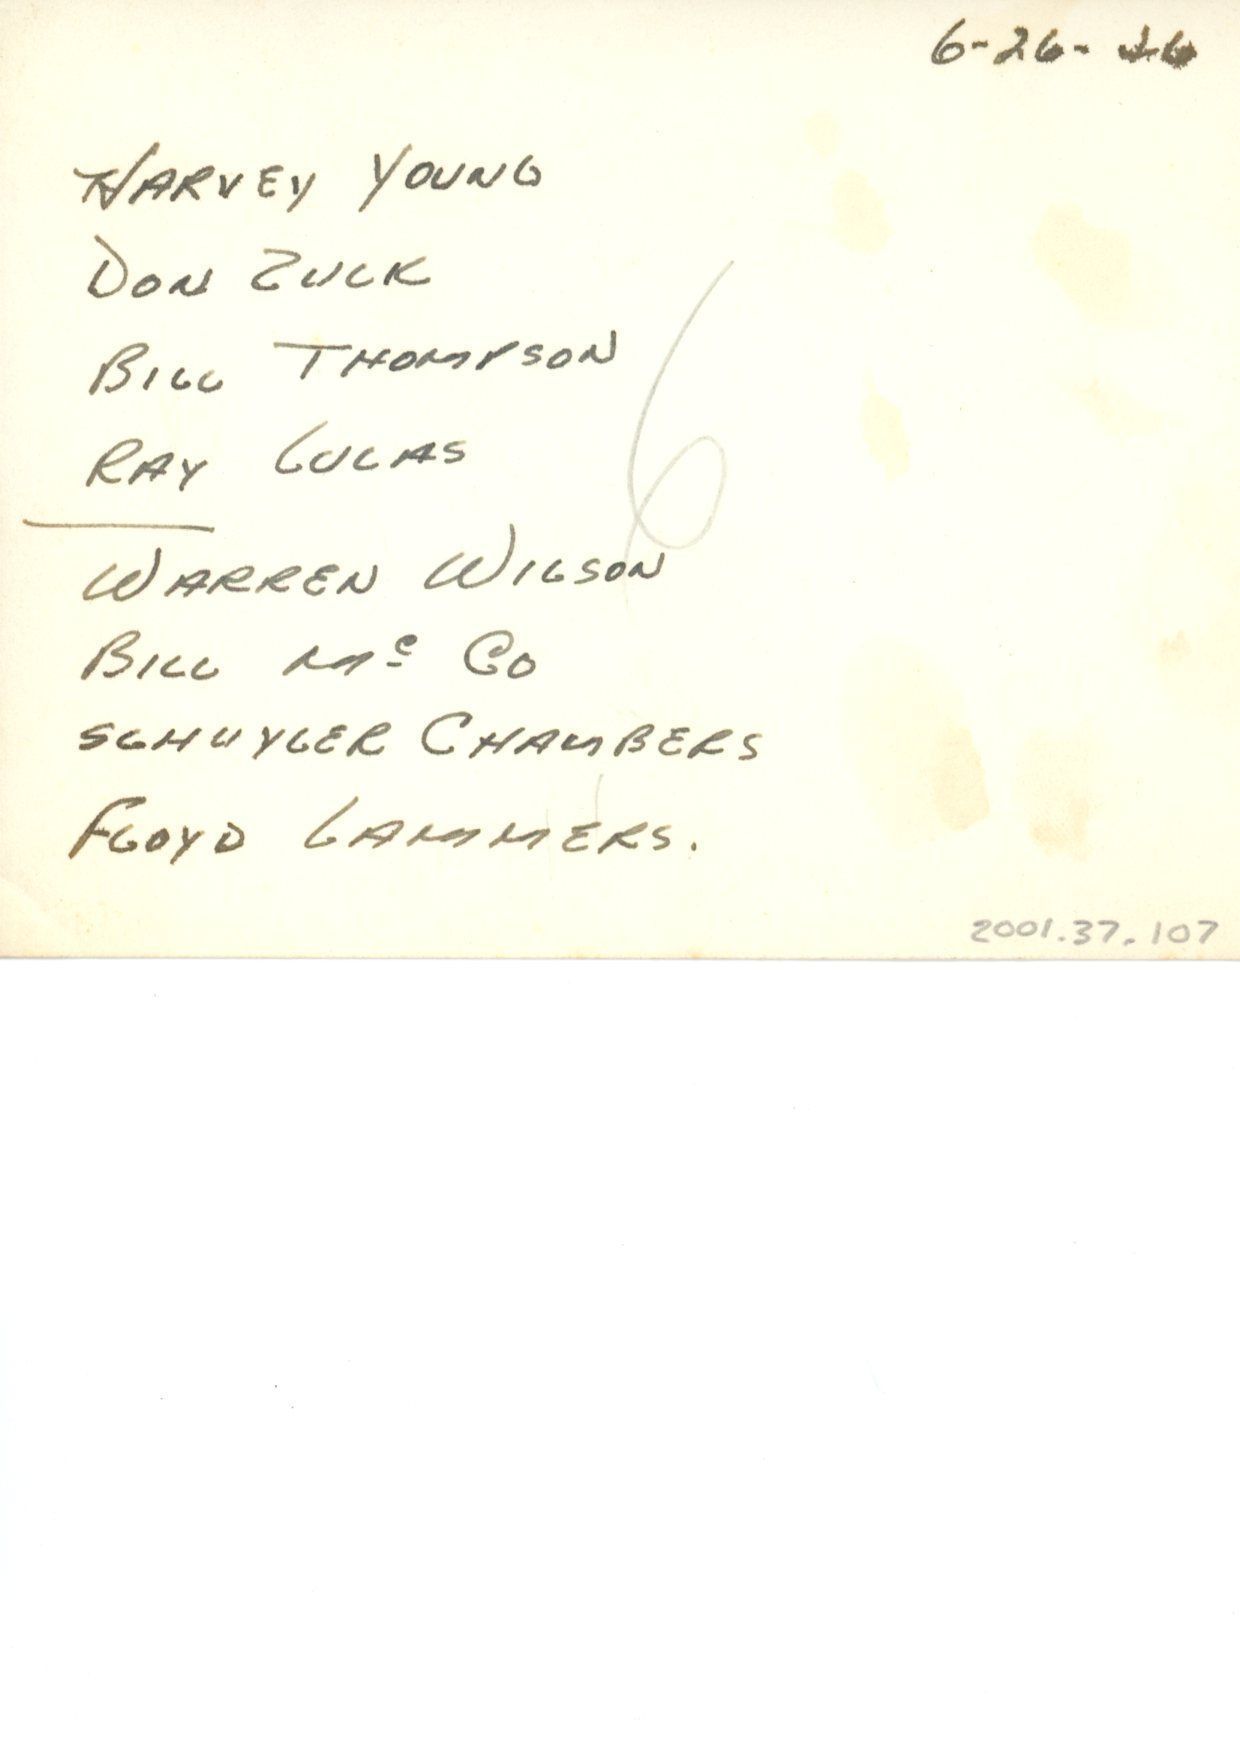 6-26-
HARVEY YOUNG
DON ZUCK
BILL THOMPSON
RAY LUCAS
6
WARREN WILSON
BILL Mc CO
SCHUYLER CHAMBERS
FLOYD LAMMERS.
2001.37.107